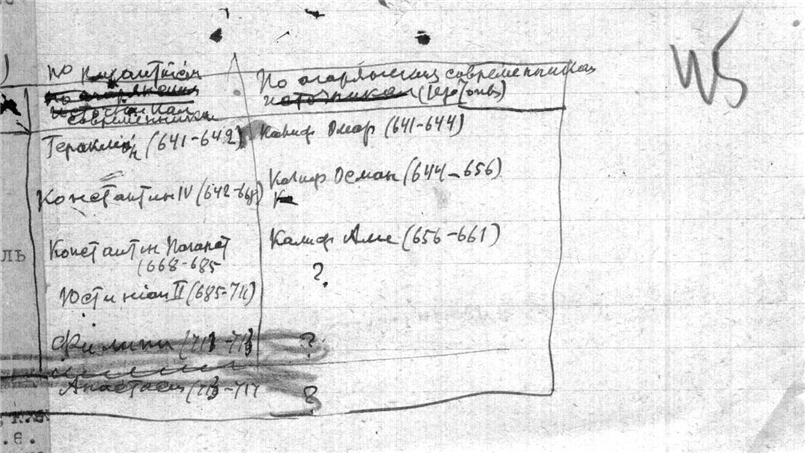 по византійск
по агарянским современникам
источникам (Герб
современники
Гераклион (641-642)
Калиф Омар (641-644)
Константин IV (642-668)
Калиф Осман (644-656)
Константин Погонат
668-685
Калиф Али (656-661)
?
Юстиніан II (685-711)
Филипп (711-713)
?
Анастасий (713-717
?
ль
N5